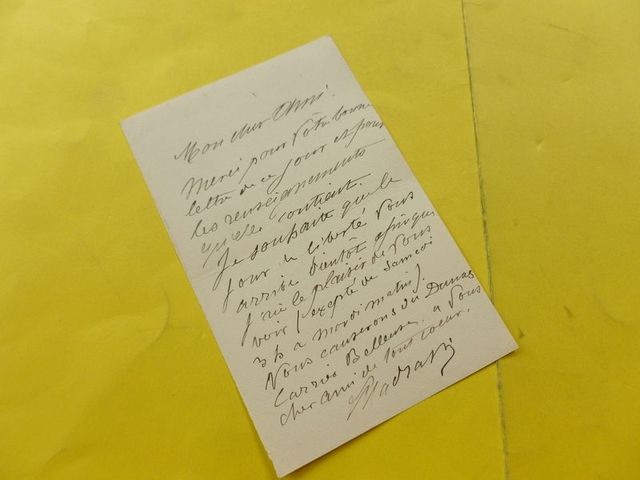 Mon cher Ami.
Merci pour Votre bonne
lettre de ce jour et pour
les renseignements
qu'elle contient.
Je souhaite que le
jour de liberté Vous
arrive bientôt afin que
j'aie le plaisir de Vous
voir (excepté de Samedi
3h a mardi matin).
Nous causerons du Danaé
Carrier Belleuse. a Vous
cher ami de tout coeur.